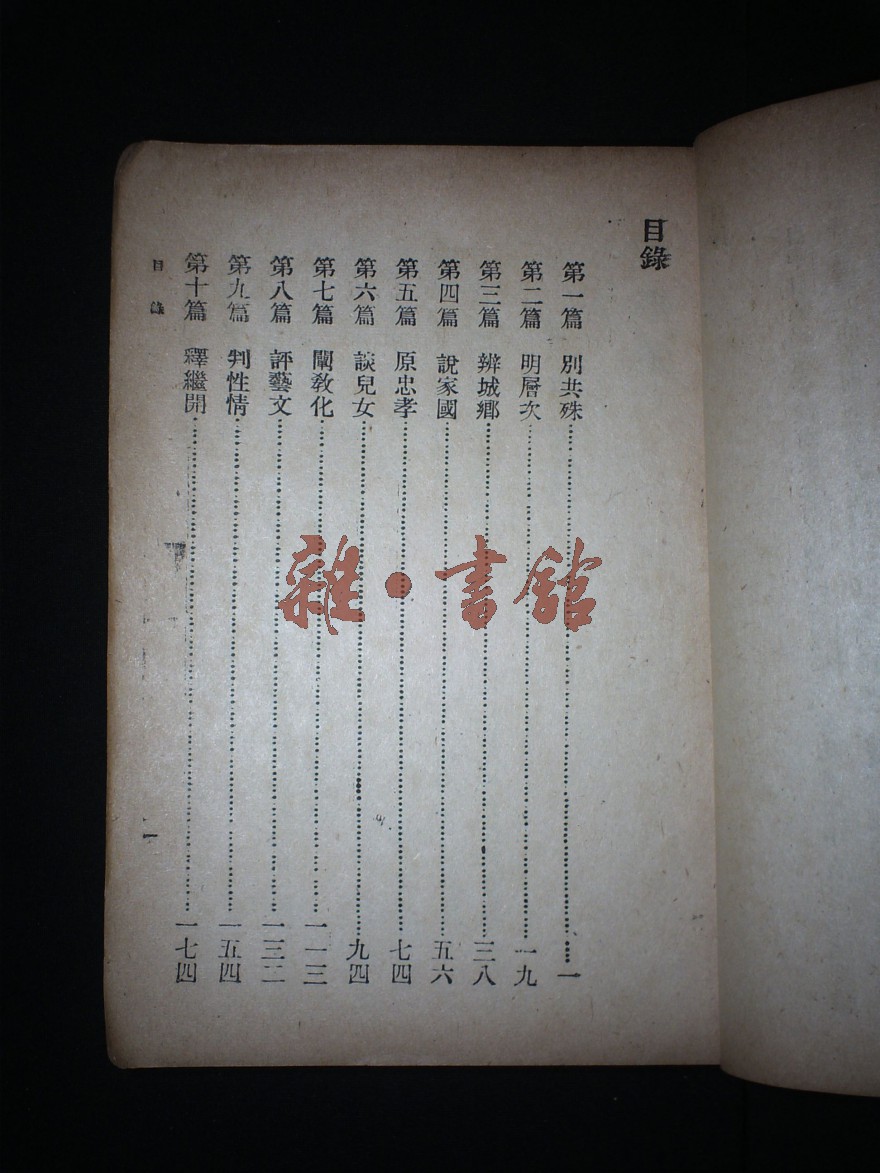 目錄
第一篇 別共殊……一
第二篇 明層次……一九
第三篇 辨城鄉……三八
第四篇 說家國……五六
第五篇 原忠孝……七四
第六篇 談兒女……九四
第七篇 闡教化……一一三
第八篇 評藝文……一三二
第九篇 判性情……一五四
第十篇 釋繼開……一七四
目錄
一
雜·書館